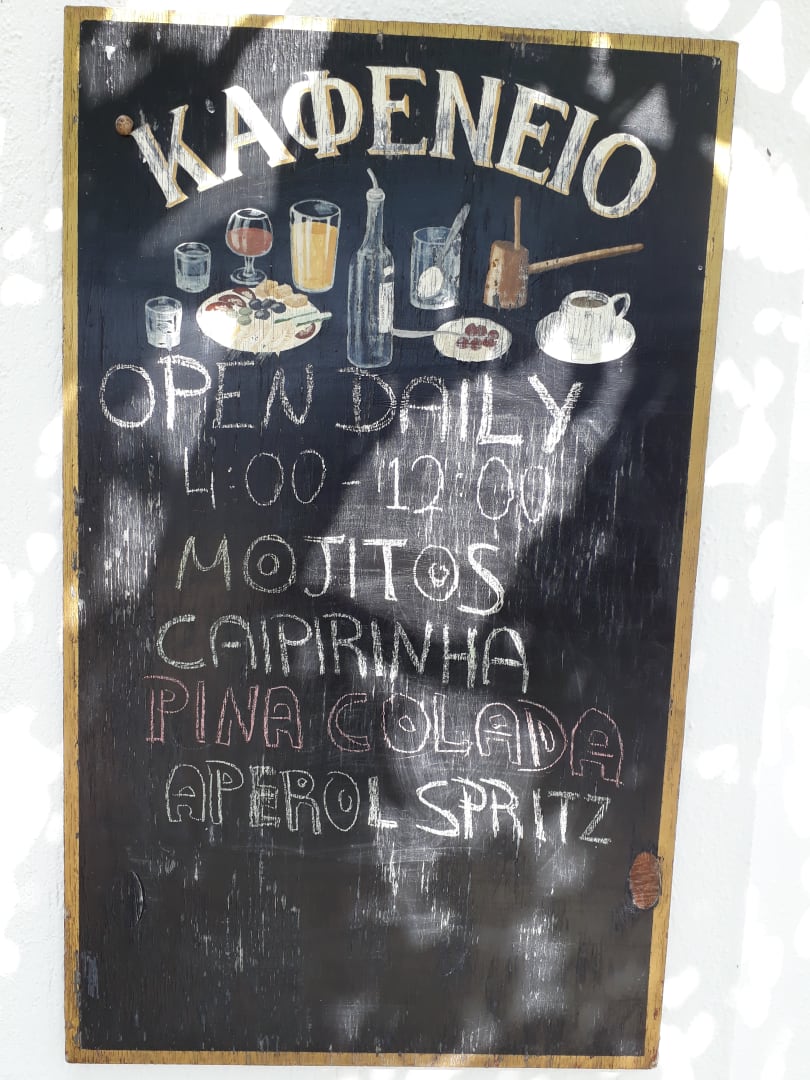 ΚΑΦΕΝΕΙΟ
OPEN DAILY
4:00 - 12:00
MOJITOS
CAIPIRINHA
PINA COLADA
APEROL SPRITZ